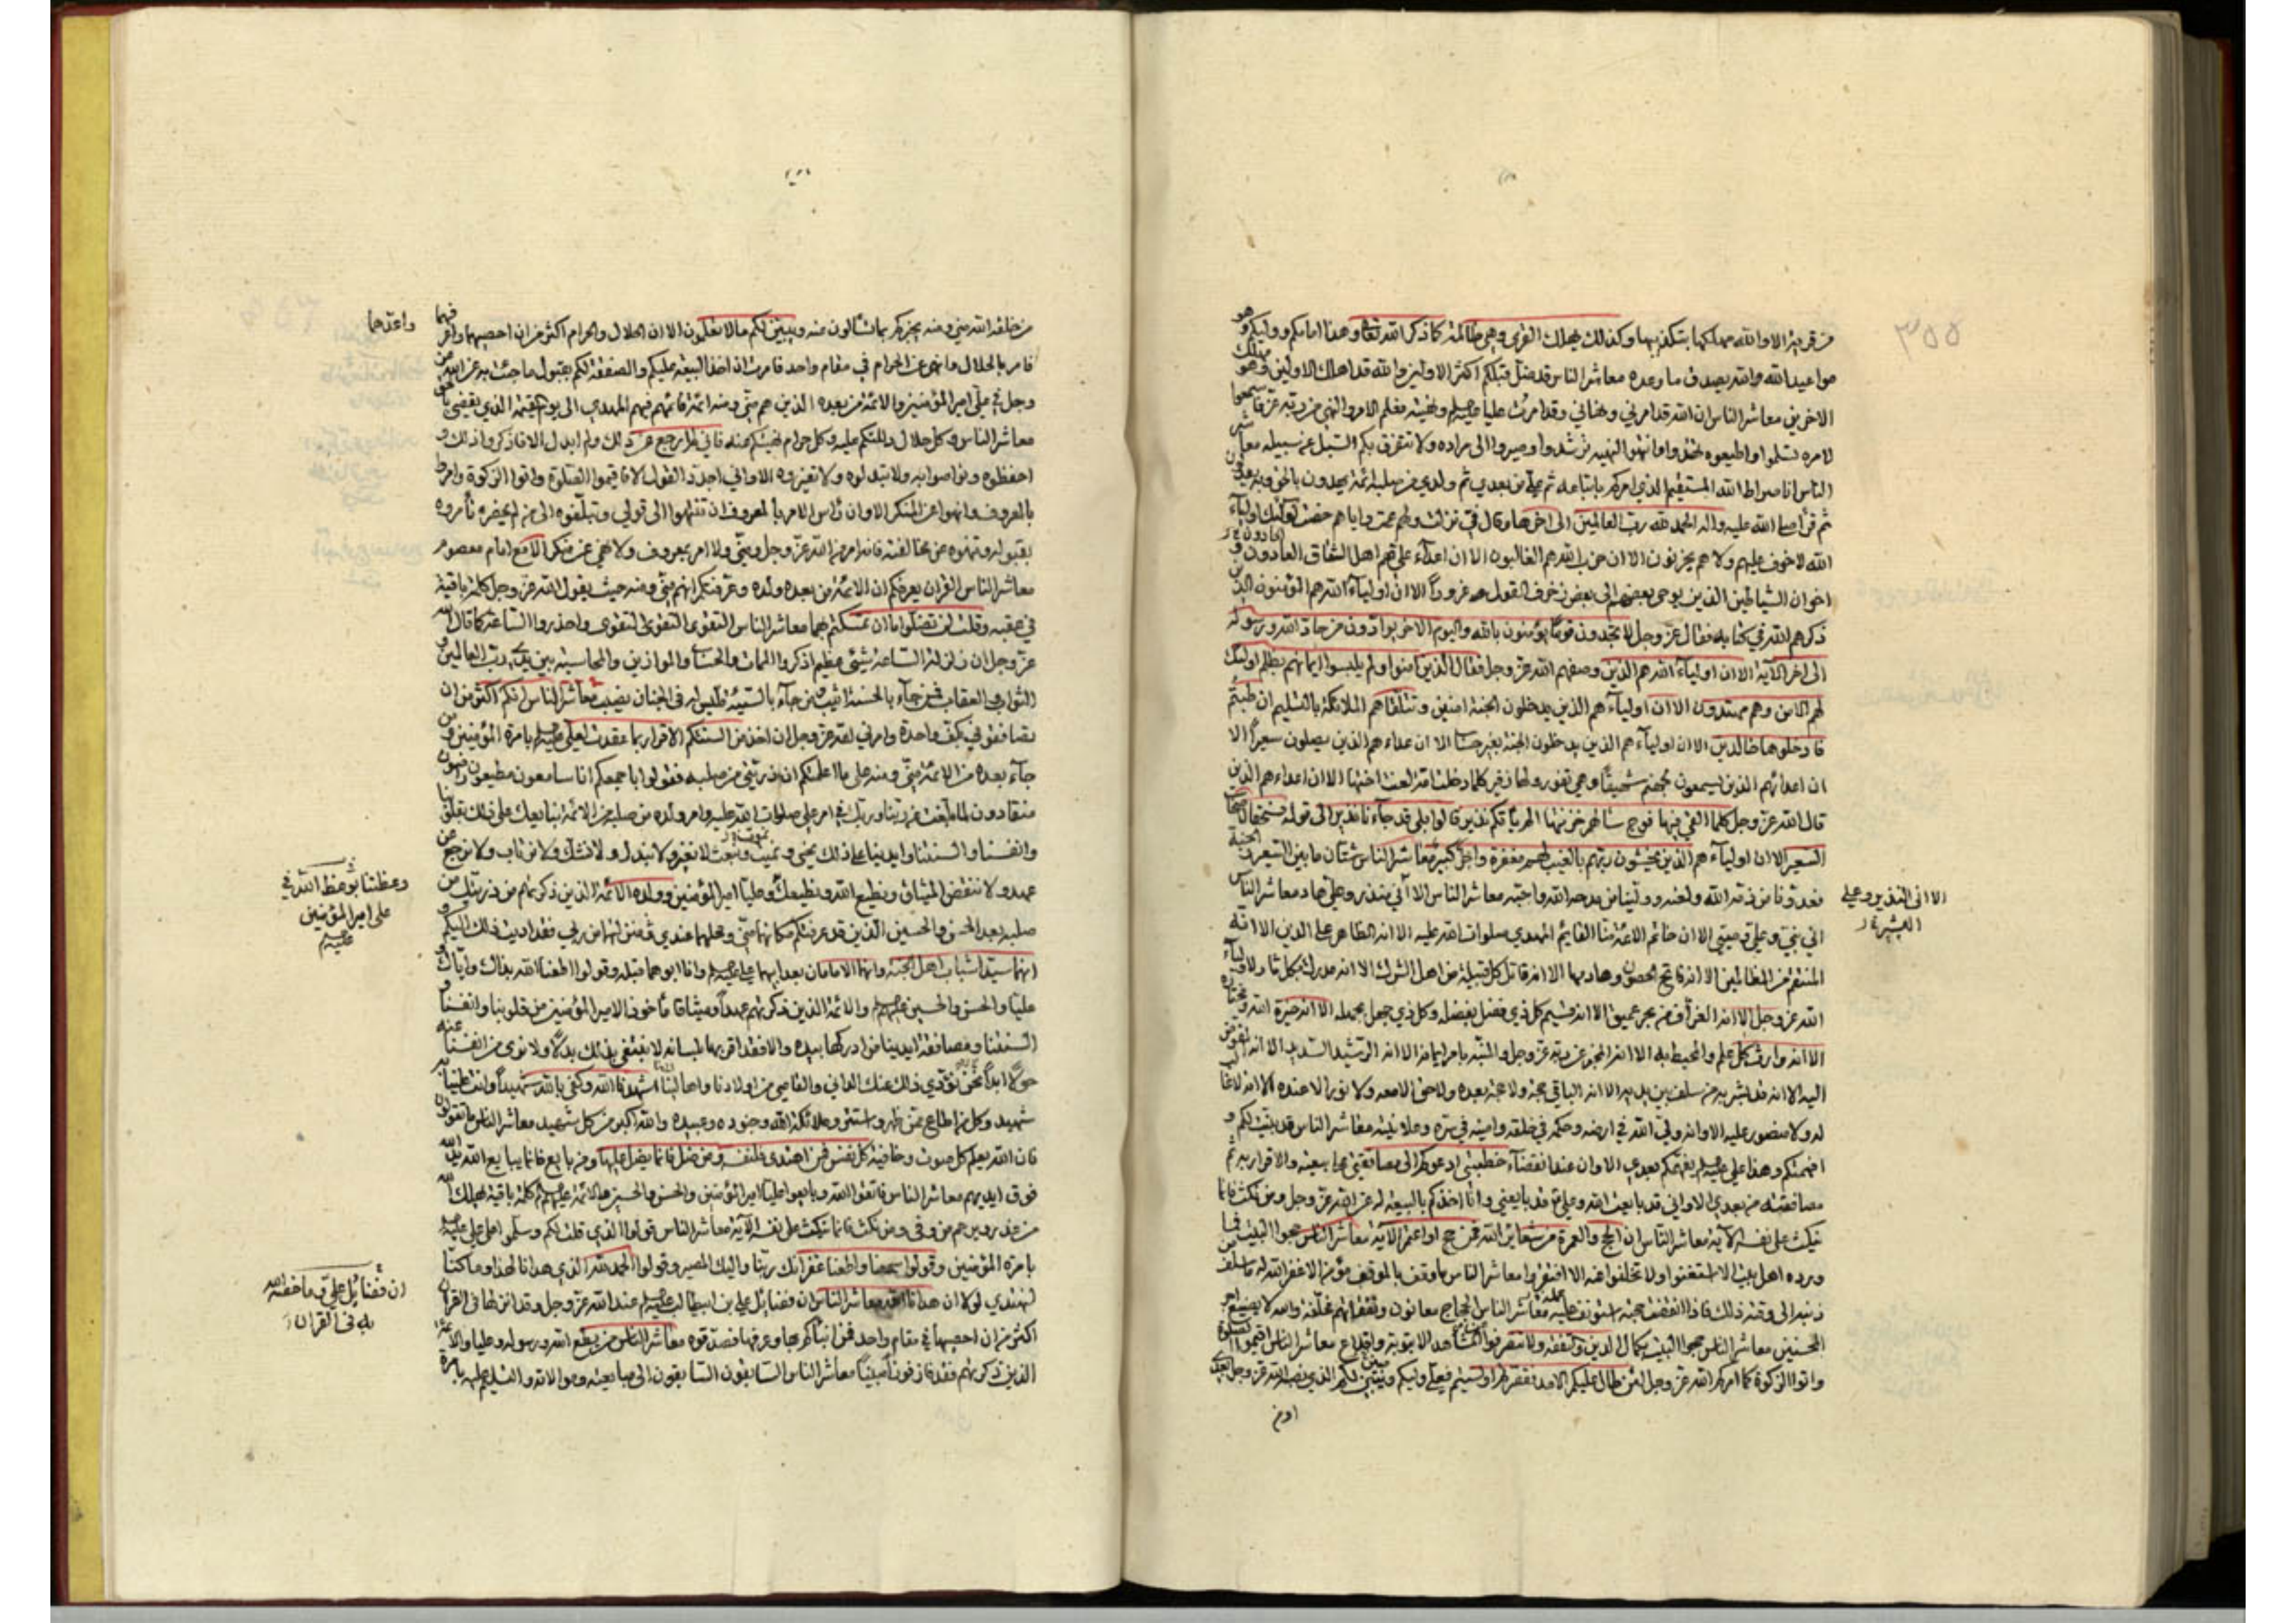 من قرية الا والله مهلكها بتكذيبها وكذلك يهلك القرى وهي ظالمة كما ذكر الله تعالى وهذا امامكم ووليكم وهو
مواعيد الله والله يصدق ما وعده معاشر الناس قد ضل قبلكم اكثر الاولين والله قد اهلك الاولين وهو مهلك
الاخرين معاشر الناس ان الله قد امرني ونهاني وقد امرت عليا ونهيته فعلم الامر والنهي من ربه عز فاسمعوا
لامره تسلموا واطيعوه تهتدوا وانتهوا لنهيه ترشدوا وصيروا الى مراده ولا تتفرق بكم السبل عن سبيله معاشر
الناس انا صراط الله المستقيم الذي امركم باتباعه ثم علي من بعدي ثم ولدي من صلبه ائمة يهدون بالحق وبه يعدلون
ثم قرأ صلى الله عليه واله الحمد لله رب العالمين الى اخرها وقال في نزلت ولهم عمت واياهم خصت اولئك اولياء
الله لا خوف عليهم ولا هم يحزنون الا ان حزب الله هم الغالبون الا ان اعداء علي هم اهل الشقاق العادون و
اخوان الشياطين الذين يوحي بعضهم الى بعض زخرف القول غرورا الا ان اولياء الله هم المؤمنون الذين
ذكرهم الله في كتابه فقال عز وجل لا تجد قوما يؤمنون بالله واليوم الاخر يوادون من حاد الله ورسوله
الى اخر الاية الا ان اولياء الله هم الذين وصفهم الله عز وجل فقال الذين امنوا ولم يلبسوا ايمانهم بظلم اولئك
لهم الامن وهم مهتدون الا ان اولياءهم الذين يدخلون الجنة امنين وتتلقاهم الملائكة بالتسليم ان طبتم
فادخلوها خالدين الا ان اولياءهم الذين يدخلون الجنة بغير حساب الا ان اعداءهم الذين يصلون سعيرا الا
ان اعدائهم الذين يسمعون لجهنم شهيقا وهي تفور ولها زفير كلما دخلت امة لعنت اختها الا ان اعداءهم الذين
قال الله عز وجل كلما القي فيها فوج سالهم خزنتها الم يأتكم نذير قالوا بلى قد جاءنا نذير الى قوله فسحقا لاصحاب
السعير الا ان اولياءهم الذين يخشون ربهم بالغيب لهم مغفرة واجر كبير معاشر الناس شتان ما بين السعير والجنة
فعدونا من ذمه الله ولعنه وولينا من مدحه الله واحبه معاشر الناس الا اني منذر وعلي هاد معاشر الناس
الا اني النذير وعلي
البشير
اني نبي وعلي وصيي الا ان خاتم الائمة منا القائم المهدي صلوات الله عليه الا انه الظاهر على الدين الا انه
المنتقم من الظالمين الا انه فاتح الحصون وهادمها الا انه قاتل كل قبيلة من اهل الشرك الا انه مدرك بكل ثار لاولياء
الله عز وجل الا انه الغراف من بحر عميق الا انه قسيم كل ذي فضل بفضله وكل ذي جهل بجهله الا انه خيرة الله ومختاره
الا انه وارث كل علم والمحيط به الا انه المخبر عن ربه عز وجل والمنبه بامر ايمانه الا انه الرشيد السديد الا انه المفوض
اليه الا انه قد بشر به من سلف بين يديه الا انه الباقي حجة ولا حجة بعده ولا حق الا معه ولا نور الا عنده الا انه لا غالب
له ولا منصور عليه الا وانه ولي الله في ارضه وحكمه في خلقه وامينه في سره وعلانيته معاشر الناس قد بينت لكم و
افهمتكم وهذا علي يفهمكم بعدي الا وان عند انقضاء خطبتي ادعوكم الى مصافقتي على بيعته والاقرار به ثم
مصافقته من بعدي الا واني قد بايعت الله وعلي قد بايعني وانا اخذكم بالبيعة له عن الله عز وجل ومن نكث فانما
ينكث على نفسه الاية معاشر الناس ان الحج والعمرة من شعائر الله فمن حج او اعتمر الاية معاشر الناس حجوا البيت فما
ورده اهل بيت الا استغنوا ولا تخلفوا عنه الا افتقروا معاشر الناس ما وقف بالموقف مؤمن الا غفر الله له ما سلف من
ذنبه الى وقته ذلك فاذا انقضت حجته استونف عمله معاشر الناس الحجاج معانون ونفقاتهم مخلفة والله لا يضيع اجر
المحسنين معاشر الناس حجوا البيت بكمال الدين والتفقه ولا تنصرفوا عن المشاهد الا بتوبة واقلاع معاشر الناس اقيموا الصلوة
واتوا الزكوة كما امركم الله عز وجل لئن طال عليكم الامد فقصرتم او نسيتم فعلي وليكم ومبين لكم الذي نصبه الله عز وجل بعدي
ومن
من خلقه الله مني ومنه يخبركم بما تسألون عنه ويبين لكم ما لا تعلمون الا ان الحلال والحرام اكثر من ان احصيهما واعرفهما
واعدهما
فامر بالحلال وانهى عن الحرام في مقام واحد فامرت ان اخذ البيعة عليكم والصفقة لكم بقبول ما جئت به عن الله عز
وجل في علي امير المؤمنين والائمة من بعده الذين هم مني ومنه ائمة قائمهم فيهم المهدي الى يوم القيمة الذي يقضي بالحق
معاشر الناس وكل حلال دللتكم عليه وكل حرام نهيتكم عنه فاني لم ارجع عن ذلك ولم ابدل الا فاذكروا ذلك و
احفظوه وتواصوا به ولا تبدلوه ولا تغيروه الا واني اجدد القول الا فاقيموا الصلوة واتوا الزكوة وامروا
بالمعروف وانهوا عن المنكر الا وان راس الامر بالمعروف ان تنتهوا الى قولي وتبلغوه الى من لم يحضره تأمروه
بقبوله وتنهوه عن مخالفته فانه امر من الله عز وجل ومني ولا امر بمعروف ولا نهي عن منكر الا مع امام معصوم
معاشر الناس القران يعرفكم ان الائمة من بعده ولده وعرفتكم انهم مني ومنه حيث يقول الله عز وجل كلمة باقية
في عقبه وقلت لن تضلوا ما ان تمسكتم بهما معاشر الناس التقوى التقوى التقوى واحذروا الساعة كما قال الله
عز وجل ان زلزلة الساعة شيئ عظيم اذكروا الممات والحساب والموازين والمحاسبة بين يدي رب العالمين و
الثواب والعقاب فمن جاء بالحسنة اثيب ومن جاء بالسيئة فليس له في الجنان نصيب معاشر الناس انكم اكثر من ان
تصافقوني بكف واحدة وامرني الله عز وجل ان اخذ من السنتكم الاقرار بما عقدت لعلي بامرة المؤمنين ومن
جاء بعده من الائمة مني ومنه على ما اعلمتكم ان ذريتي من صلبه فقولوا باجمعكم انا سامعون مطيعون راضون
منقادون لما بلغت عن ربنا وربك في امر علي صلوات الله عليه وامر ولده من صلبه من الائمة نبايعك على ذلك بقلوبنا
وانفسنا والسنتنا وايدينا على ذلك نحيى ونميت ونبعث لا نغير ولا نبدل ولا نشك ولا نرتاب ولا نرجع عن
عهد ولا ننقض الميثاق ونطيع الله ونطيعك وعليا امير المؤمنين وولده الائمة الذين ذكرتهم من ذريتك من
وعظتنا بوعظ الله في
علي امير المؤمنين
عليه السلام
صلبه بعد الحسن والحسين الذين قد عرفتكم مكانهما مني ومحلهما عندي ومنزلتهما من ربي فقد اديت ذلك اليكم و
انهما سيدا شباب اهل الجنة وانهما الامامان بعد ابيهما علي وانا ابوهما قبله وقولوا اطعنا الله بذلك واياك و
عليا والحسن والحسين والائمة الذين ذكرتهم عهدا وميثاقا مأخوذا لامير المؤمنين من قلوبنا وانفسنا و
السنتنا ومصافقة ايدينا من ادركها بيده والا فقد اقر بها بلسانه لا نبتغي بذلك بدلا ولا نرى من انفسنا عنه
حولا ابدا نحن نؤدي ذلك عنك الداني والقاصي من اولادنا واهالينا اشهدنا الله وكفى بالله شهيدا وانت علينا به
شهيد وكل من اطاع ممن ظهر واستتر وملائكة الله وجنوده وعبيده والله اكبر من كل شهيد معاشر الناس ما تقولون
فان الله يعلم كل صوت وخافية كل نفس فمن اهتدى فلنفسه ومن ضل فانما يضل عليها ومن بايع فانما يبايع الله يد الله
فوق ايديهم معاشر الناس فاتقوا الله وبايعوا عليا امير المؤمنين والحسن والحسين والائمة كلمة باقية يهلك الله
من غدر ويرحم من وفى ومن نكث فانما ينكث على نفسه الاية معاشر الناس قولوا الذي قلت لكم وسلموا على علي
بامرة المؤمنين وقولوا سمعنا واطعنا غفرانك ربنا واليك المصير وقولوا الحمد لله الذي هدانا لهذا وما كنا
لنهتدي لولا ان هدانا الله معاشر الناس ان فضائل علي بن ابيطالب عند الله عز وجل وقد انزلها في القران
ان فضائل علي وما خصه الله
به في القران
اكثر من ان احصيها في مقام واحد فمن انبأكم بها وعرفها فصدقوه معاشر الناس من يطع الله ورسوله وعليا والائمة
الذين ذكرتهم فقد فاز فوزا مبينا معاشر الناس السابقون السابقون الى مبايعته وموالاته والتسليم عليه بامرة